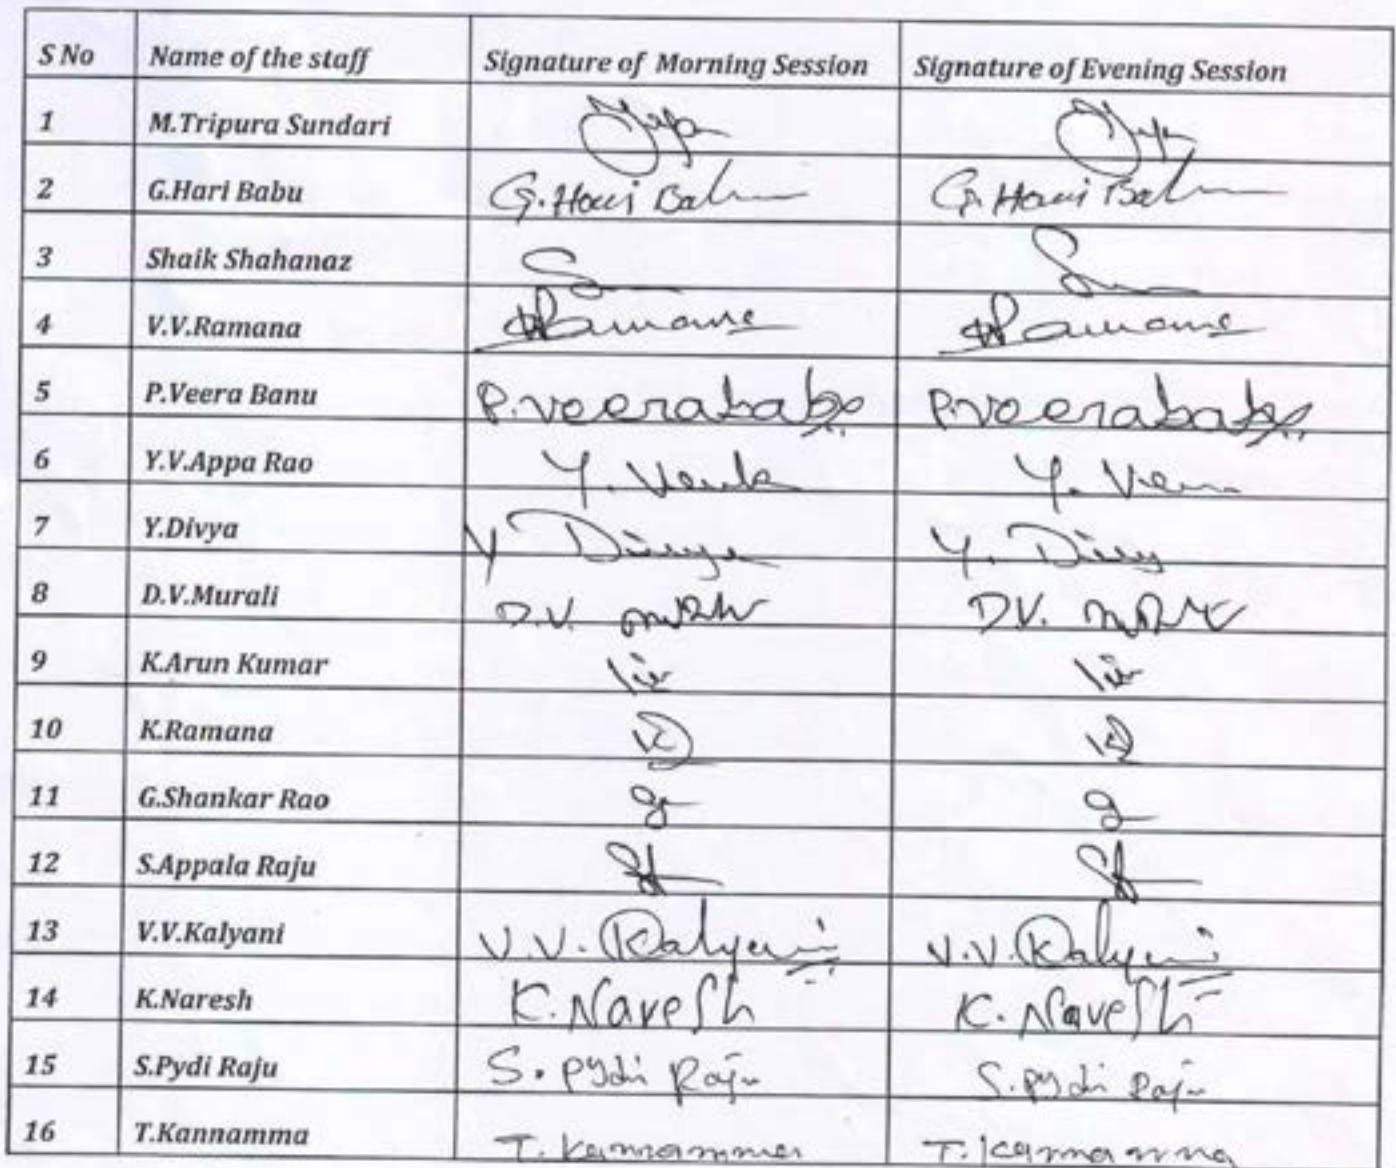 S No Name of the staff Signature of Morning Session Signature of Evening Session
1 M.Tripura Sundari
2 G.Hari Babu G.Hari Babu G.Hari Babu
3 Shaik Shahanaz
4 V.V.Ramana Ramana Ramana
5 P.Veera Banu P.veerababu P.veerababu
6 Y.V.Appa Rao Y. Y.
7 Y.Divya Y Divya Y. Divy
8 D.V.Murali D.V. D.V.
9 K.Arun Kumar
10 K.Ramana
11 G.Shankar Rao
12 S.Appala Raju
13 V.V.Kalyani V.V. Kalyani V.V. Kalyani
14 K.Naresh K.Naresh K.Naresh
15 S.Pydi Raju S. Pydi Raju S. Pydi Raju
16 T.Kannamma T. Kannamma T. Kannamma